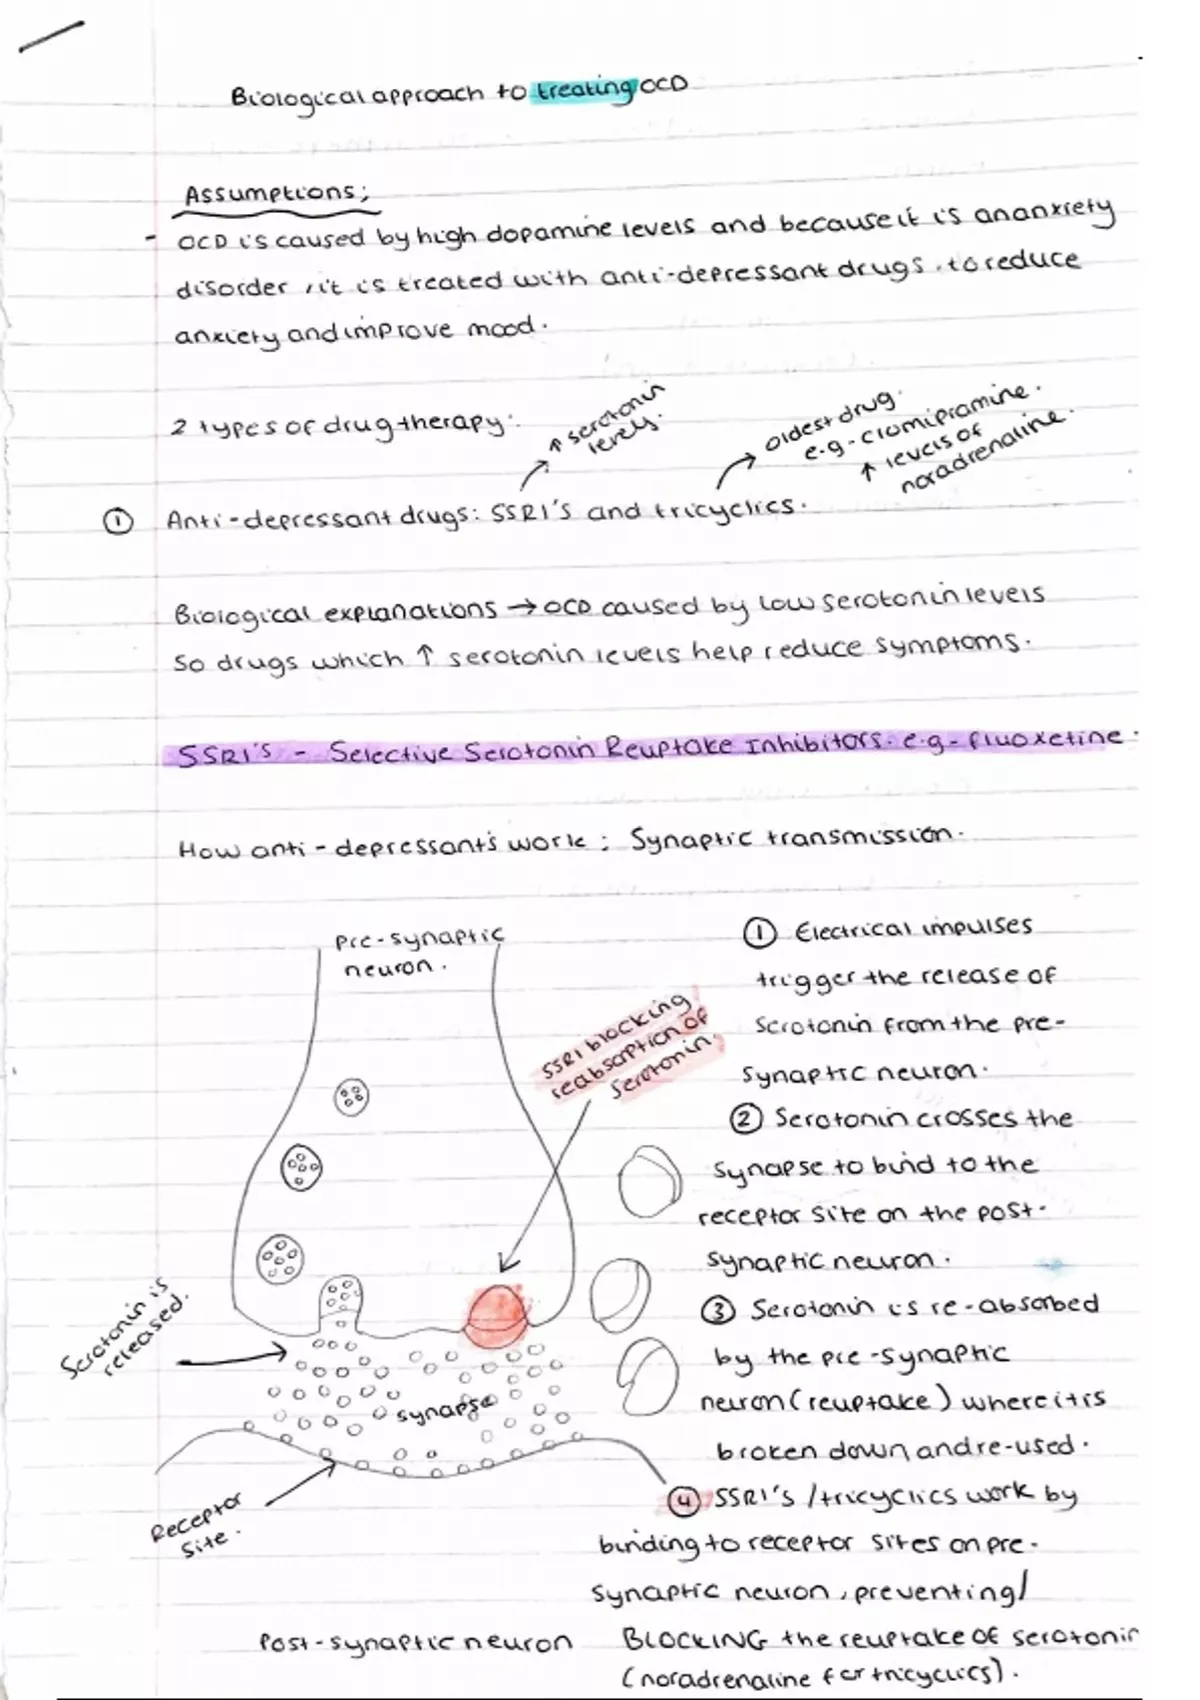 Biological approach to treating OCD
Assumptions;
- OCD is caused by high dopamine levels and because it is an anxiety
disorder, it is treated with anti-depressant drugs, to reduce
anxiety and improve mood.
2 types of drug therapy:
↑ serotonin
levels.
oldest drug.
e.g - clomipramine.
↑ levels of
noradrenaline.
① Anti-depressant drugs: SSRI's and tricyclics.
Biological explanations → OCD caused by low serotonin levels
so drugs which ↑ serotonin levels help reduce symptoms.
SSRI's - Selective Serotonin Reuptake Inhibitors. e.g - fluoxetine.
How anti-depressants work: Synaptic transmission.
pre-synaptic
neuron.
SSRI blocking
reabsorption of
serotonin.
Serotonin is
released.
synapse
Receptor
site.
Post-synaptic neuron
① Electrical impulses
trigger the release of
serotonin from the pre-
synaptic neuron.
② Serotonin crosses the
synapse to bind to the
receptor site on the post-
synaptic neuron.
③ Serotonin is re-absorbed
by the pre-synaptic
neuron (reuptake) where it is
broken down and re-used.
④ SSRI's / tricyclics work by
binding to receptor sites on pre-
synaptic neuron, preventing/
BLOCKING the reuptake of serotonin
(noradrenaline for tricyclics).